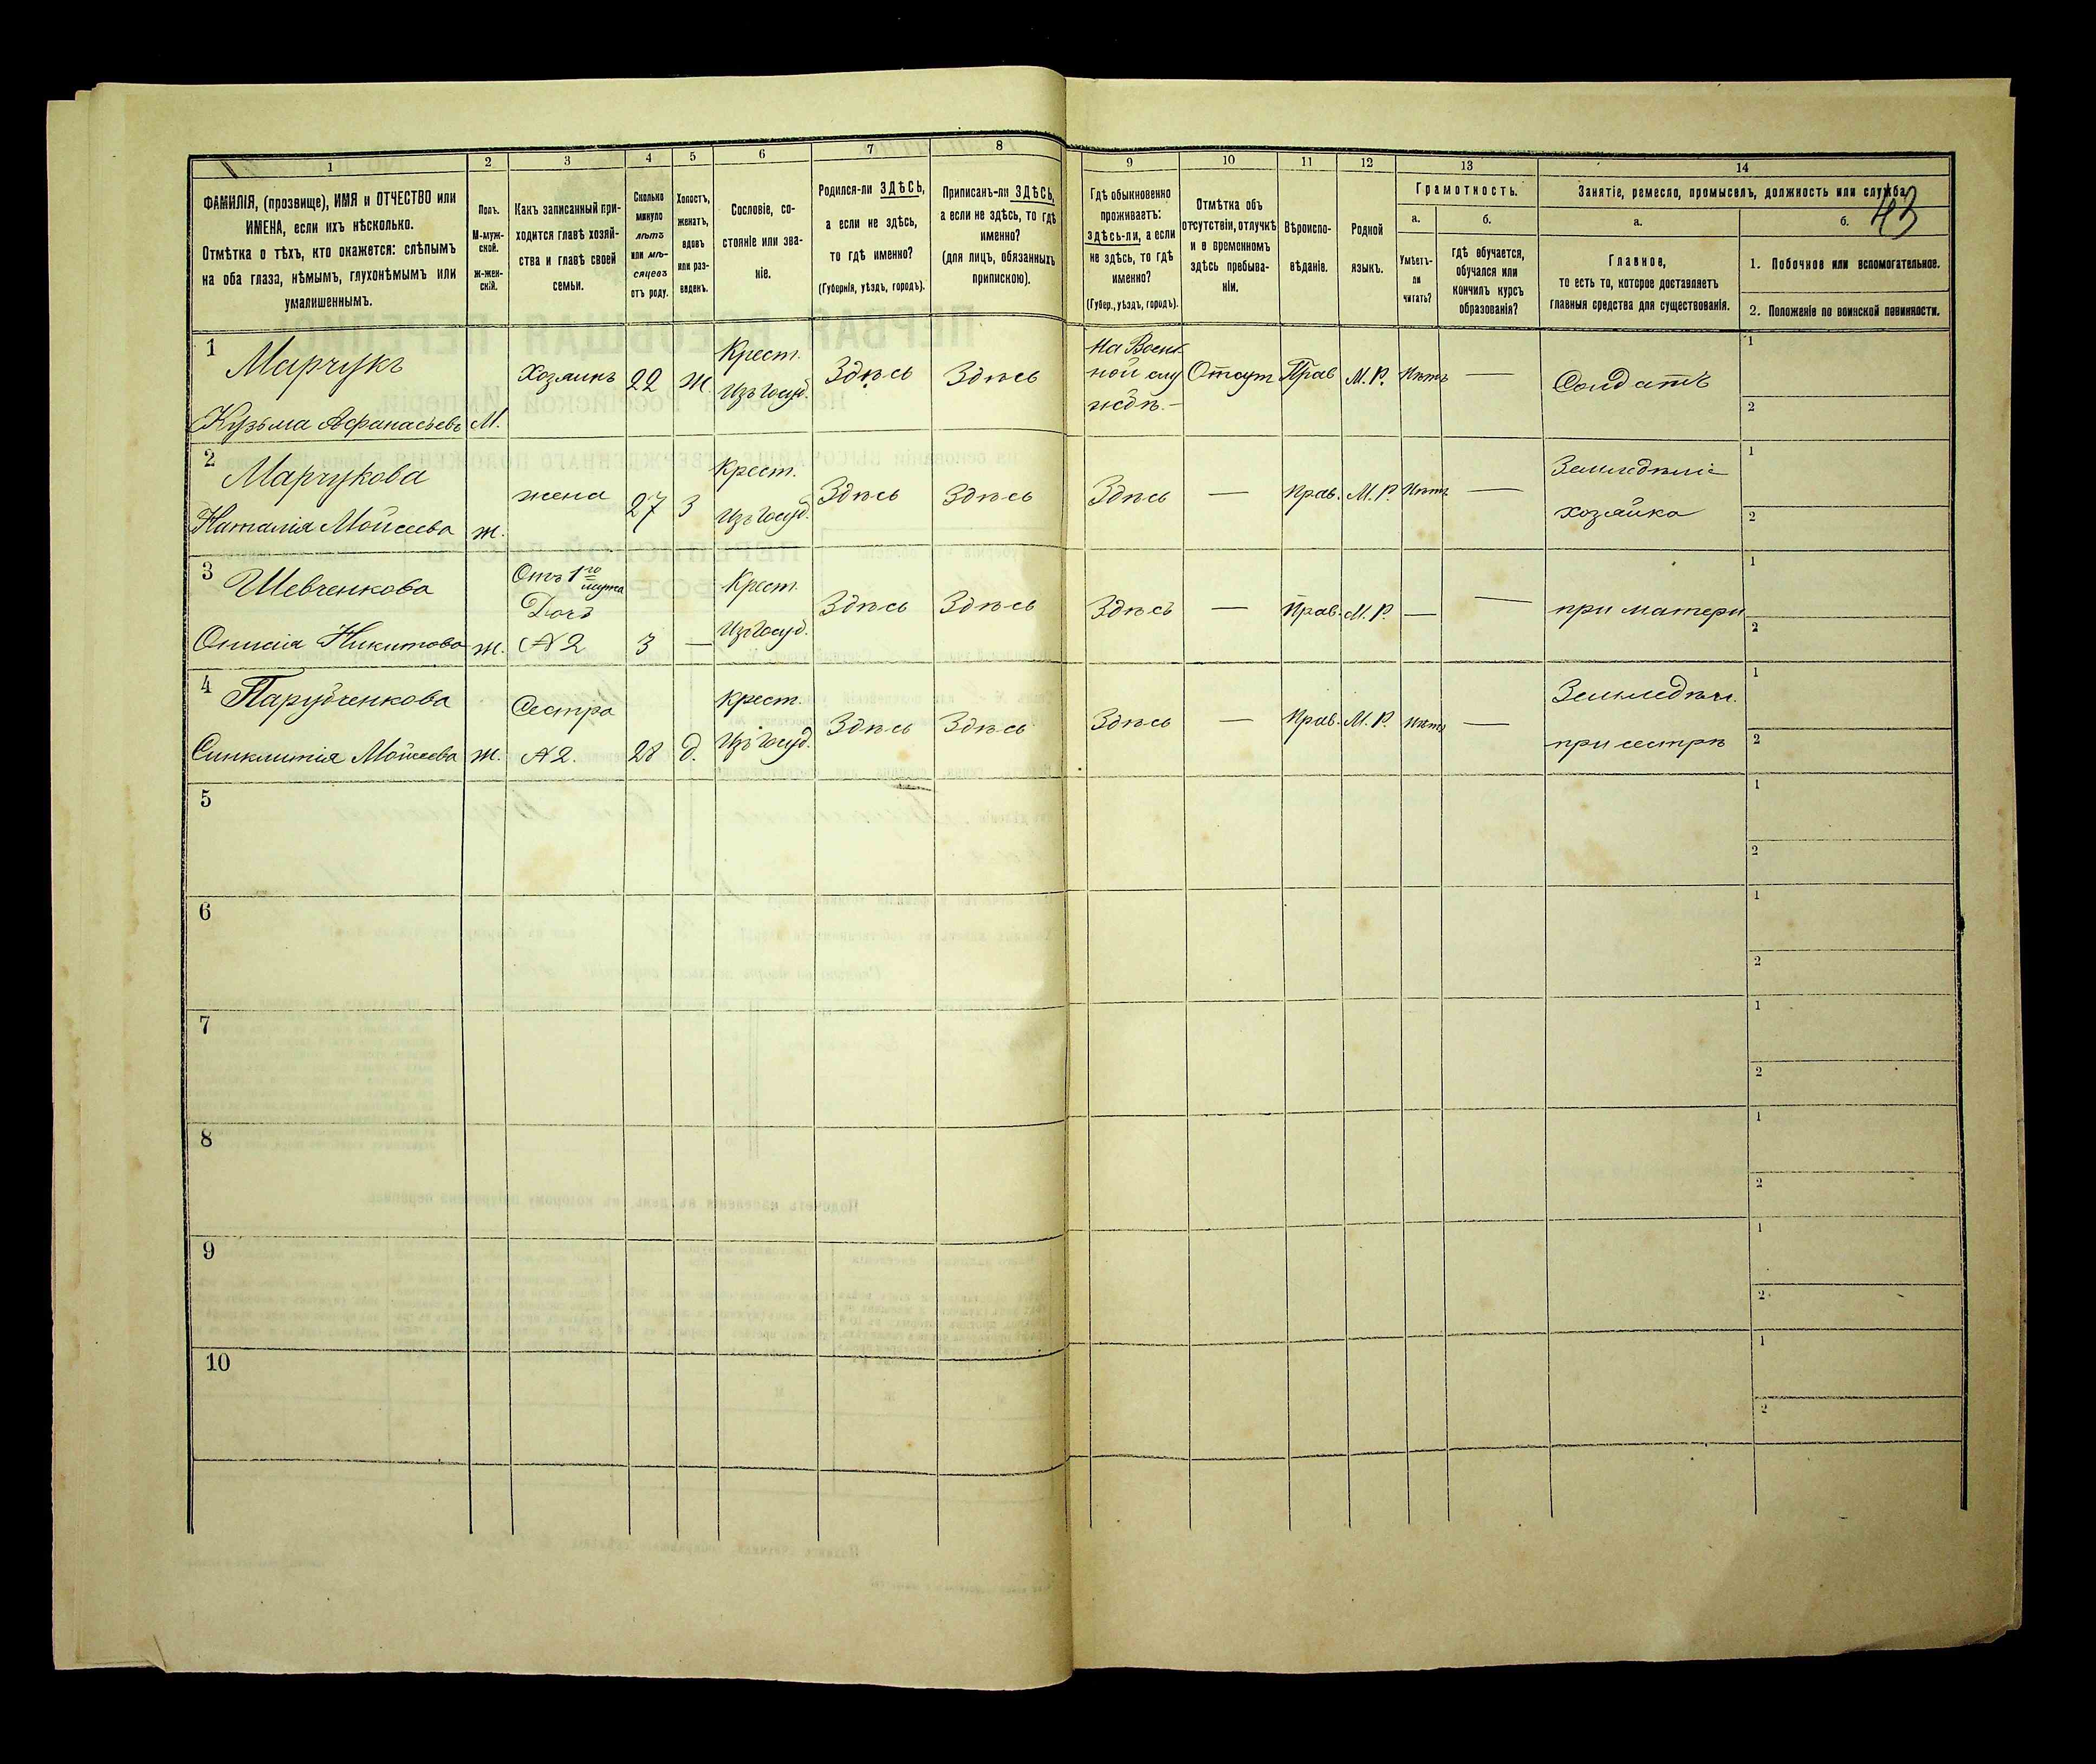 43
1
2
3
4
5
6
7
8
9
10
11
12
13
14
ФАМИЛІЯ, (прозвище), ИМЯ и ОТЧЕСТВО или
ИМЕНА, если ихъ нѣсколько.
Отмѣтка о тѣхъ, кто окажется: слѣпымъ
на оба глаза, нѣмымъ, глухонѣмымъ или
умалишеннымъ.
Полъ.
М-муж-
ской.
ж-жен-
скій.
Какъ записанный при-
ходится главѣ хозяй-
ства и главѣ своей
семьи.
Сколько
минуло
лѣтъ
или мѣ-
сяцевъ
отъ роду.
Холостъ,
женатъ,
вдовъ
или раз-
веденъ.
Сословіе, со-
стояніе или зва-
ніе.
Родился-ли ЗДѢСЬ,
а если не здѣсь,
то гдѣ именно?
(Губернія, уѣздъ, городъ).
Приписанъ-ли ЗДѢСЬ,
а если не здѣсь, то гдѣ
именно?
(для лицъ, обязанныхъ
припискою).
Гдѣ обыкновенно
проживаетъ:
здѣсь-ли, а если
не здѣсь, то гдѣ
именно?
(Губер., уѣздъ, городъ).
Отмѣтка объ
отсутствіи, отлучкѣ
и о временномъ
здѣсь пребыва-
ніи.
Вѣроиспо-
вѣданіе.
Родной
языкъ.
Грамотность.
а.
б.
Умѣетъ-
ли
читать?
гдѣ обучается,
обучался или
кончилъ курсъ
образованія?
Занятіе, ремесло, промыселъ, должность или служба.
а.
б.
Главное,
то есть то, которое доставляетъ
главныя средства для существованія.
1. Побочное или вспомогательное.
2. Положеніе по воинской повинности.
1
Марчукъ
Кузьма Афанасьевъ
М.
Хозяинъ
22
Ж
Крест.
Изъ Госуд.
Здѣсь
Здѣсь
На Воен-
ной слу
жбѣ.-
Отсут
Прав
М. Р.
Нѣтъ
—
Солдатъ
1
2
2
Марчукова
Наталія Мойсеева
ж.
жена
27
З
Крест.
Изъ Госуд.
Здѣсь
Здѣсь
Здѣсь
—
Прав.
М. Р.
Нѣтъ
—
Земледѣліе
хозяйка
1
2
3
Шевченкова
Никитова
ж.
Отъ 1го
мужа
Дочь
№ 2
3
—
Крест.
Изъ Госуд.
Здѣсь
Здѣсь
Здѣсь
—
Прав.
М. Р.
—
—
при матери
1
2
4
Парубченкова
Синклитія Мойсеева
ж.
Сестра
№ 2.
28
д.
Крест.
Изъ Госуд.
Здѣсь
Здѣсь
Здѣсь
—
Прав.
М. Р.
Нѣтъ
—
Земледѣл.
при сестрѣ
1
2
5
1
2
6
1
2
7
1
2
8
1
2
9
1
2
10
1
2